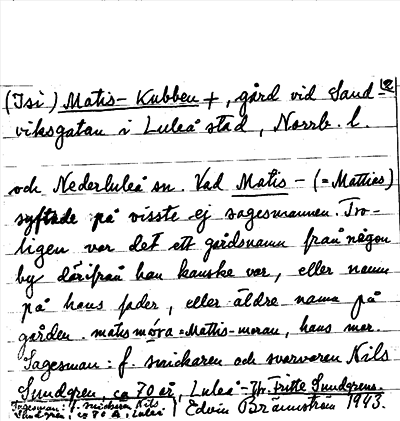 2
(Isi) Matis-Kubben +, gård vid Sand-
viksgatan i Luleå stad, Norrb. l.
och Nederluleå sn. Vad Matis- (= Mattias)
syftade på visste ej sagesmannen. Tro-
ligen var det ett gårdsnamn från någon
by därifrån han kanske var, eller namn
på hans fader, eller äldre namn på
gården. matis móra = Mattis-moran, hans mor.
Sagesman: f. snickaren och svarvaren Nils
Sundgren, ca 70 år, Luleå - Fritte Sundgrens.
Sagesman: f. snickaren Nils
Sundgren, ca 70 å, Luleå Edvin Brännström 1943.